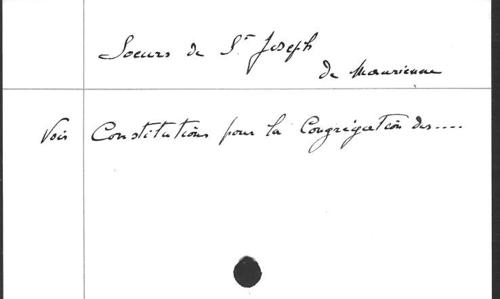 Soeurs de St Joseph
de Maurienne
Voir Constitutions pour la Congrégation des....